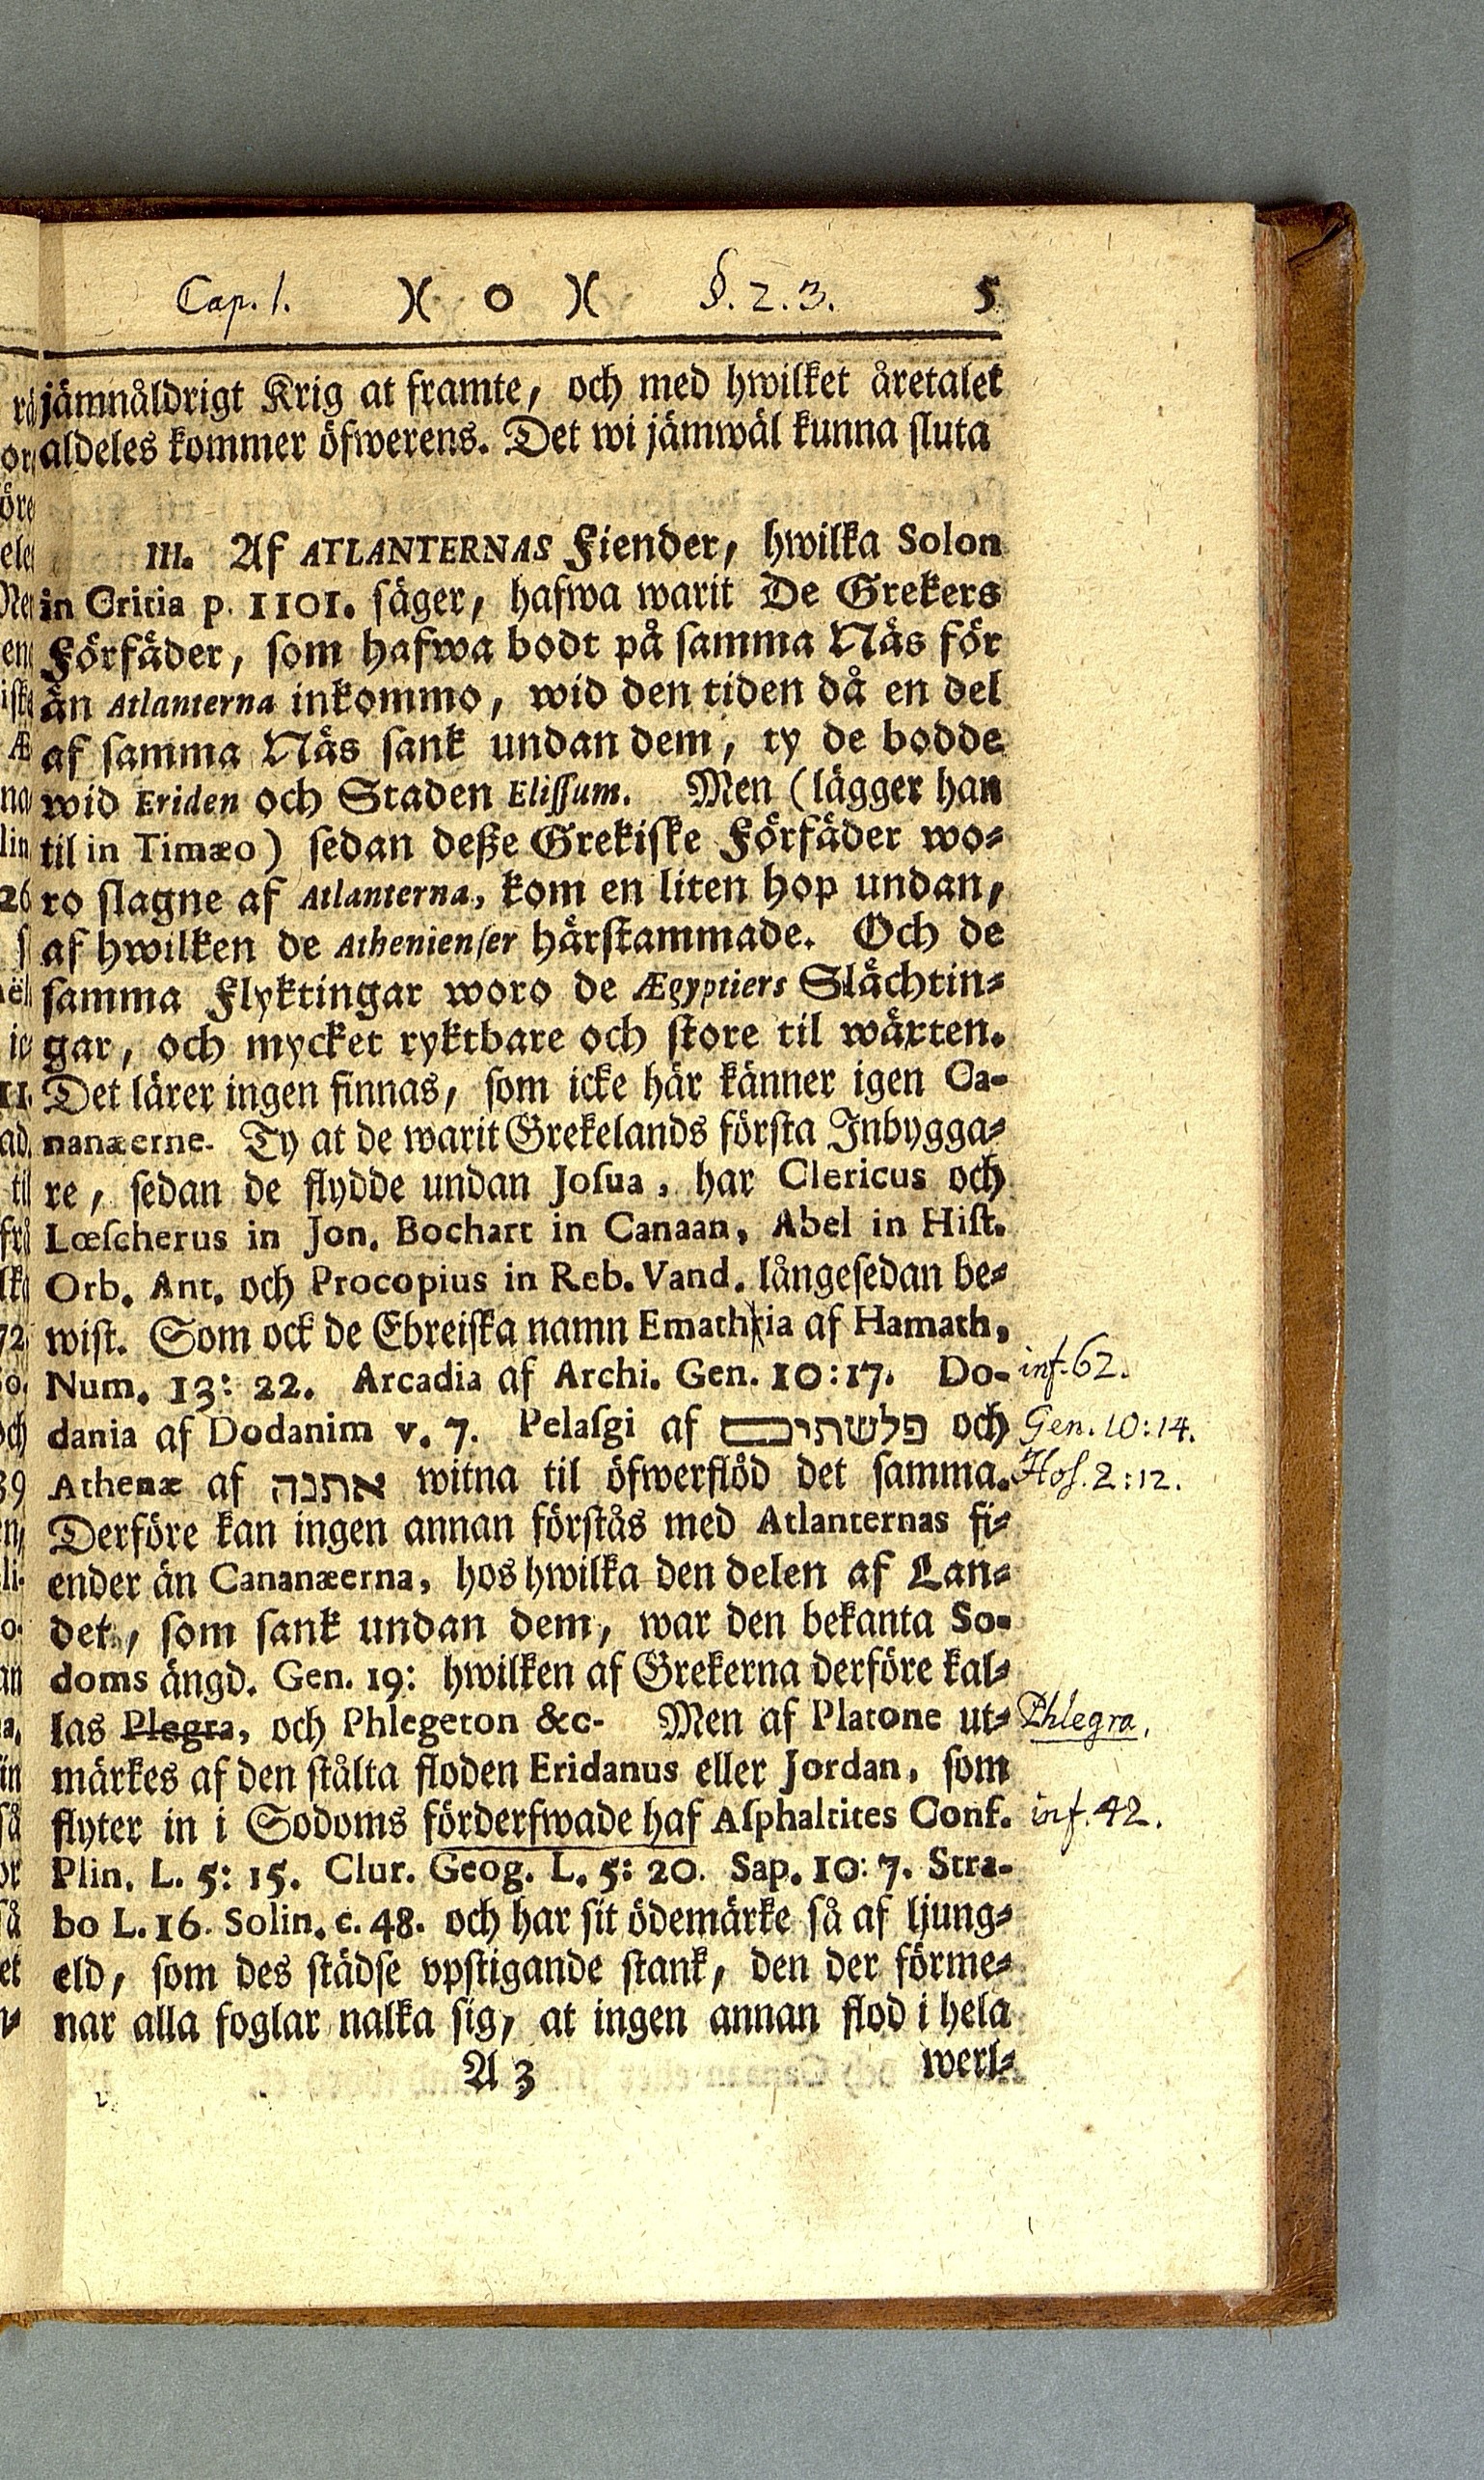 Cap. 1. )( o )( §. 2. 3. 5
jämnåldrigt Krig at framte, och med hwilket åretalet
aldeles kommer öfwerens. Det wi jämwäl kunna sluta
III. Af ATLANTERNAS Fiender, hwilka Solon
in Critia p. 1101. säger, hafwa warit De Grekers
Förfäder, som hafwa bodt på samma Näs för
än Atlanterna inkommo, wid den tiden då en del
af samma Näs sank undan dem, ty de bodde
wid Eriden och Staden Elissum. Men (lägger han
til in Timæo) sedan deße Grekiske Förfäder wo-
ro slagne af Atlanterna, kom en liten hop undan,
af hwilken de Athenienser härstammade. Och de
samma Flyktingar woro de Ægyptiers Slächtin-
gar, och mycket ryktbare och store til wäxten.
Det lärer ingen finnas, som icke här känner igen Ca-
nanæerne. Ty at de warit Grekelands första Inbygga-
re, sedan de flydde undan Josua, har Clericus och
Lœscherus in Jon. Bochart in Canaan, Abel in Hist.
Orb. Ant. och Procopius in Reb. Vand. långesedan be-
wist. Som ock de Ebreiska namn Emathria af Hamath,
Num. 13: 22. Arcadia af Archi. Gen. 10:17. Do- inf. 62.
dania af Dodanim v. 7. Pelasgi af פלשתים och Gen. 10:14.
Athenæ af אתנה witna til öfwerflöd det samma. Hos. 2:12.
Derföre kan ingen annan förstås med Atlanternas fi-
ender än Cananæerna, hos hwilka den delen af Lan-
det, som sank undan dem, war den bekanta So-
doms ängd. Gen. 19: hwilken af Grekerna derföre kal-
las Plegra, och Phlegeton &c. Men af Platone ut- Phlegra.
märkes af den stålta floden Eridanus eller Jordan, som
flyter in i Sodoms förderfwade haf Asphaltites Conf. inf. 42.
Plin. L. 5: 15. Clur. Geog. L. 5: 20. Sap. 10: 7. Stra-
bo L. 16. Solin. c. 48. och har sit ödemärke så af ljung-
eld, som des städse vpstigande stank, den der förme-
nar alla foglar nalka sig, at ingen annan flod i hela
A 3 werl-